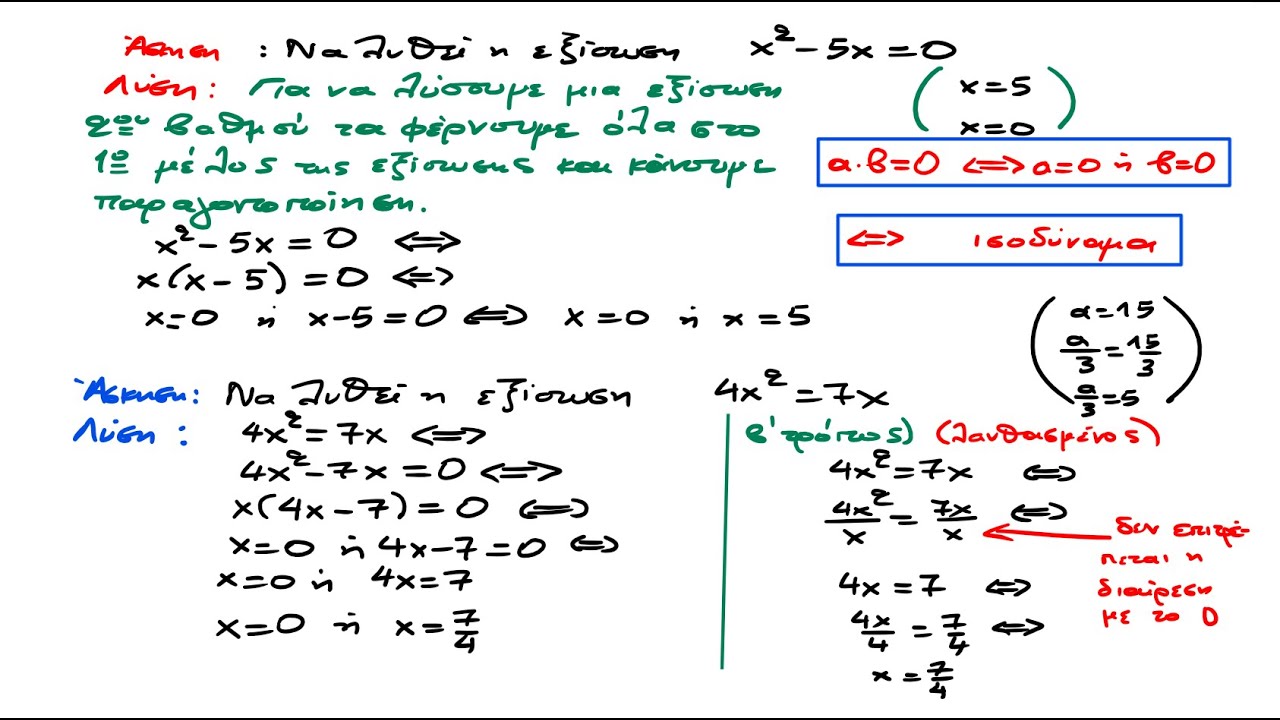 Άσκηση : Να λυθεί η εξίσωση x² - 5x = 0
Λύση : Για να λύσουμε μια εξίσωση
2ου βαθμού τα φέρνουμε όλα στο
1ο μέλος της εξίσωσης και κάνουμε
παραγοντοποίηση.
(x = 5
x = 0)
α·β=0 ⟺ α=0 ή β=0
⟺ ισοδύναμα
x² - 5x = 0 ⟺
x(x - 5) = 0 ⟺
x=0 ή x-5=0 ⟺ x=0 ή x=5
(α=15
α/3 = 15/3
α/3 = 5)
Άσκηση: Να λυθεί η εξίσωση 4x² = 7x
Λύση : 4x² = 7x ⟺
4x² - 7x = 0 ⟺
x(4x - 7) = 0 ⟺
x=0 ή 4x-7=0 ⟺
x=0 ή 4x=7
x=0 ή x=7/4
β' τρόπος) (λανθασμένος)
4x² = 7x ⟺
4x²/x = 7x/x ⟺
δεν επιτρέ-
πεται η
διαίρεση
με το 0
4x = 7 ⟺
4x/4 = 7/4 ⟺
x = 7/4